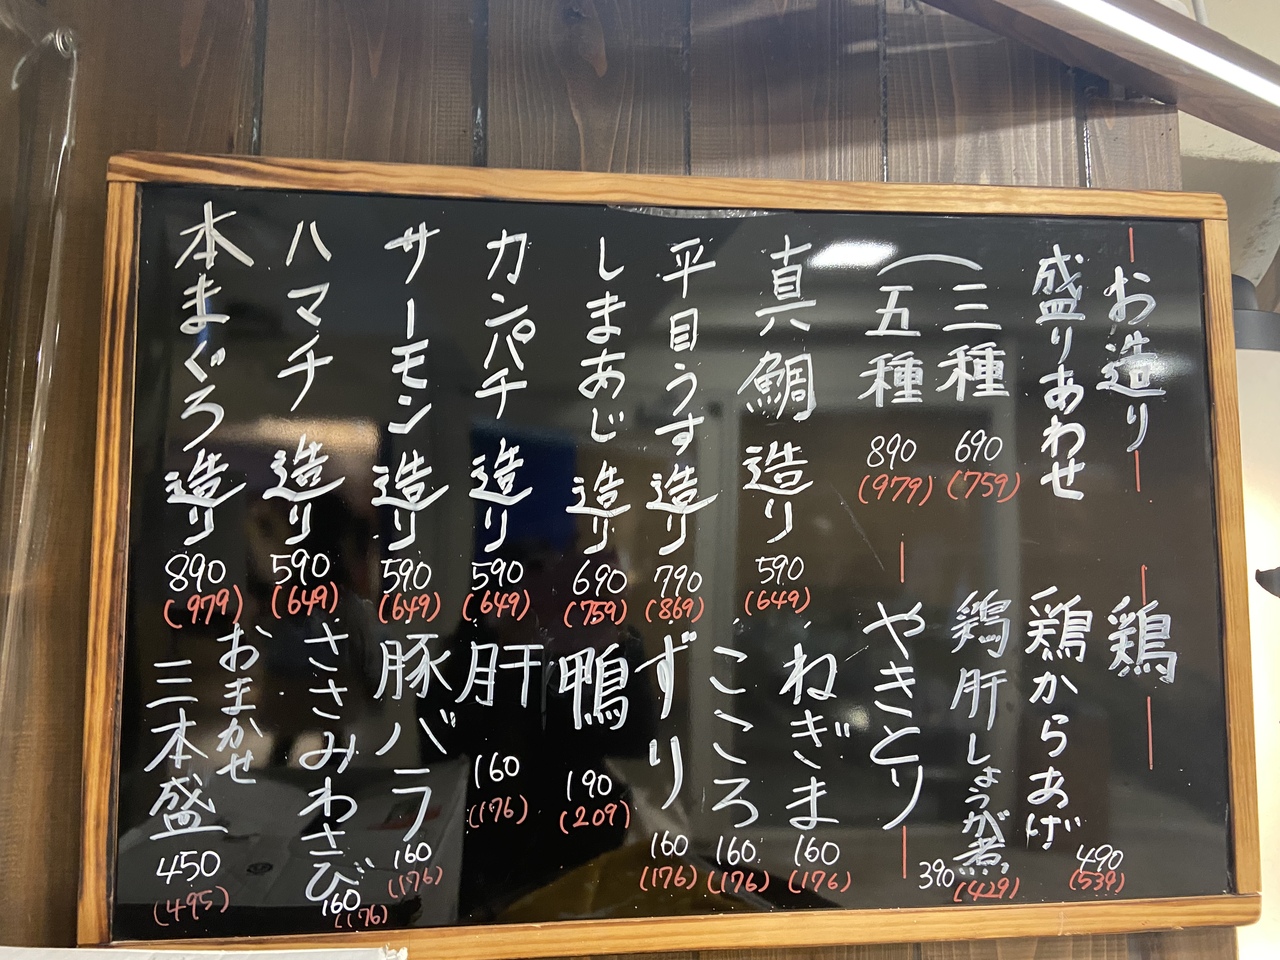 お造り
盛りあわせ
三種 690 (759)
五種 890 (979)
真鯛造り 590 (649)
平目うす造り 790 (869)
しまあじ造り 690 (759)
カンパチ造り 590 (649)
サーモン造り 590 (649)
ハマチ造り 590 (649)
本まぐろ造り 890 (979)
鶏
鶏からあげ 490 (539)
鶏肝しょうが煮 390 (429)
やきとり
ねぎま 160 (176)
こころ 160 (176)
ずり 160 (176)
鴨 190 (209)
肝 160 (176)
豚バラ 160 (176)
ささみわさび 160 (176)
おまかせ
三本盛 450 (495)